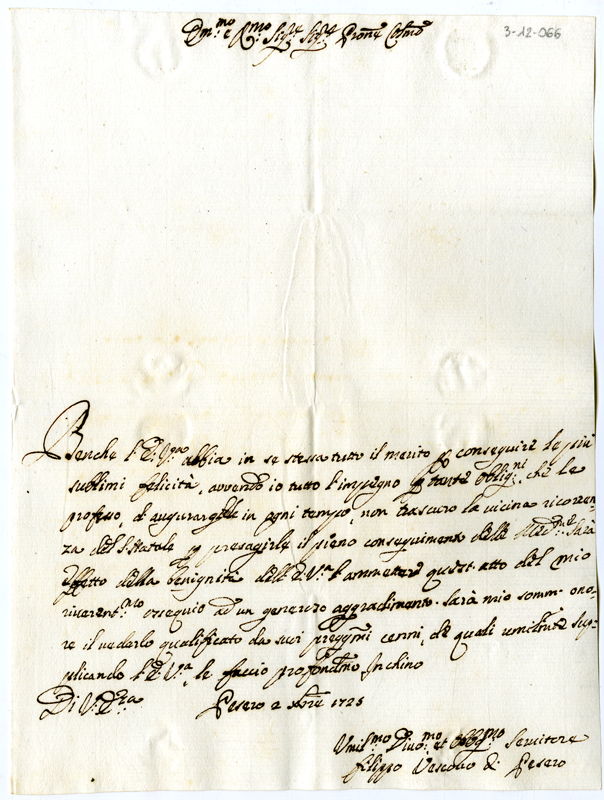 Em.mo e R.mo Sig.re Sig.re Prone Colmo
3-12-066
Benche l'E. V.ra abbia in se stessa tutto il merito p conseguire le più
sublimi felicità, avendo io tutto l'impegno p tante oblig.ni, che le
professo, d'augurargliele in ogni tempo, non trascuro la vicina ricorren=
za del S. Natale p presagirle il pieno conseguimento delle Mede.me Sarà
effetto della benignità dell'E. V.ra l'ammettere quest'atto del mio
riverent.mo ossequio ad un generoso aggradimento. Sarà mio somm. ono=
re il vederlo qualificato da suoi pregg.mi cenni, de quali umilmte sup=
plicando l'E. V.ra, le faccio profondmo Inchino
Di V. E.za
Pesero 2 1725
Umil.mo Divo.mo et Obblig.mo Servitore
Filippo Vescovo di Pesero